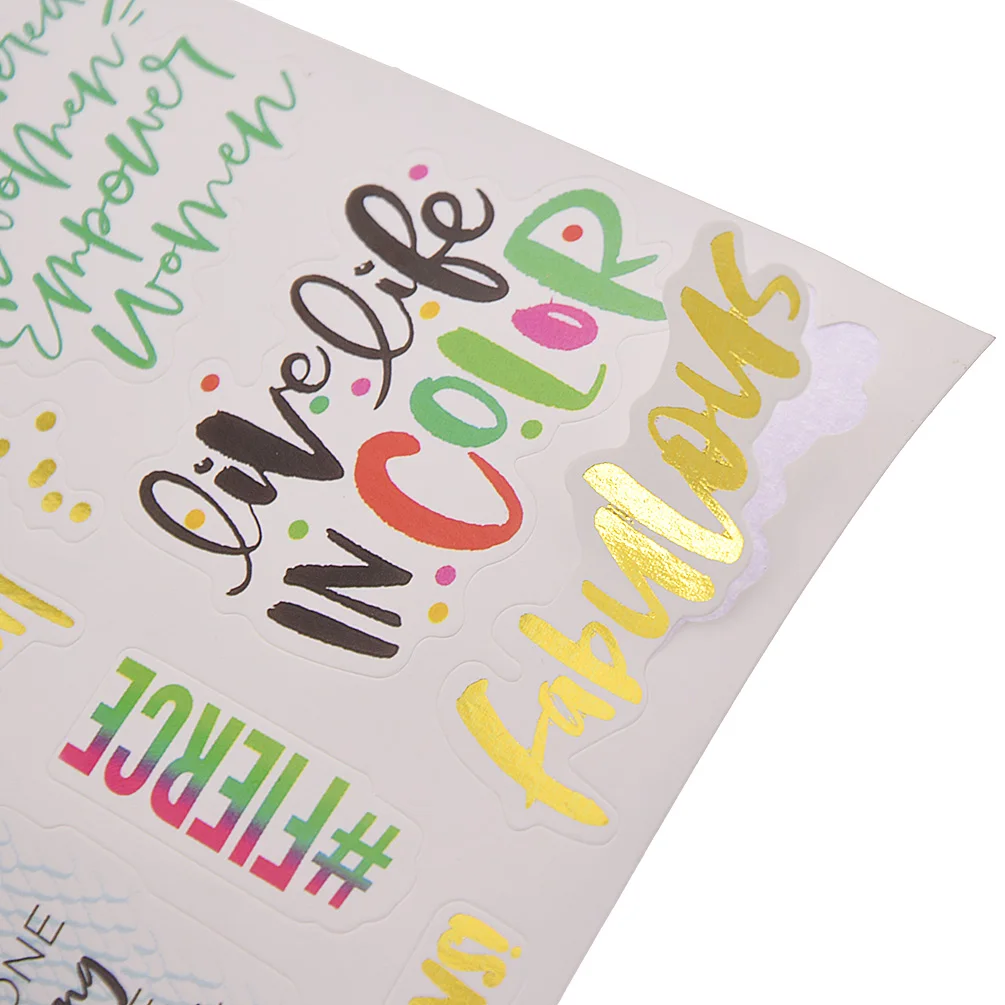 Women
Empower
Women
live life
IN COLOR
fabulous
#FIERCE
ONE